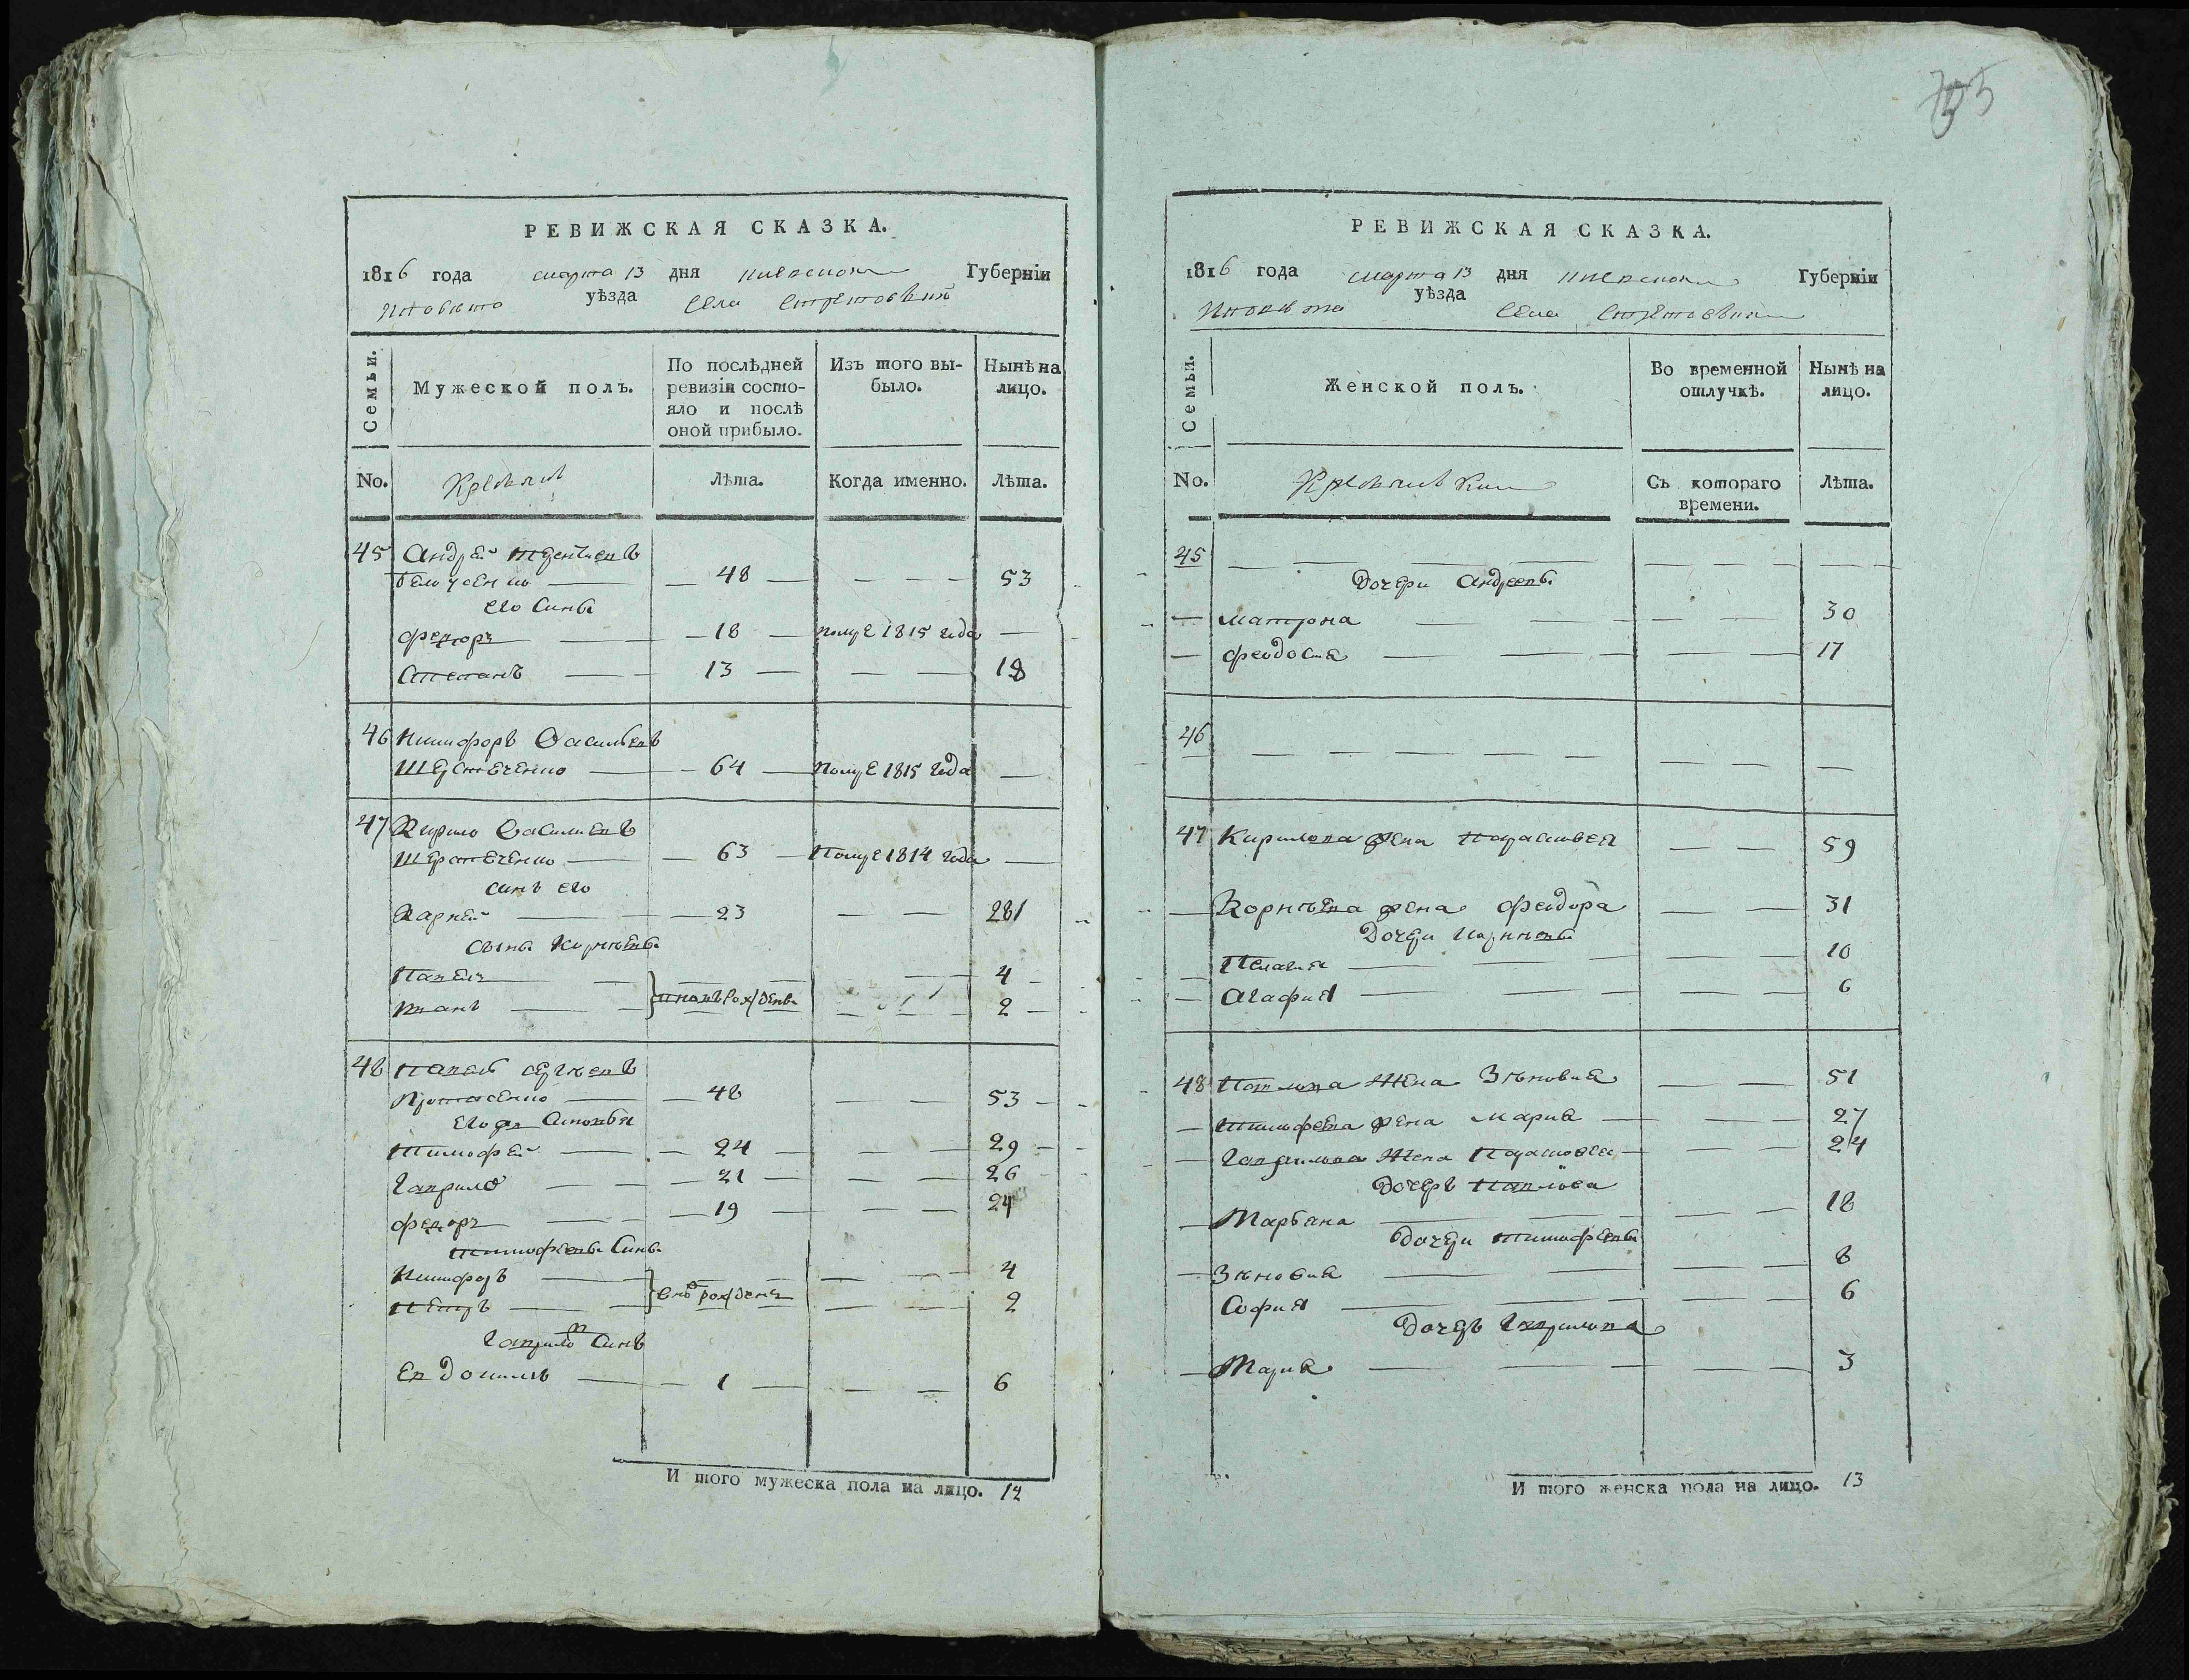 735
РЕВИЖСКАЯ СКАЗКА.
1816 года марта 13 дня Киевской Губерніи
уѣзда Села
Семьи.
Мужеской полъ.
По послѣдней ревизіи состояло и послѣ оной прибыло.
Изъ того выбыло.
Нынѣ на лицо.
No.
Лѣта.
Когда именно.
Лѣта.
45 Андрей Терентиевъ
Белоусенко — 48 — — — 53
его Сины
Федоръ — 18 — помре 1815 года —
Степанъ — 13 — — — 18
46 Никифоръ Васильевъ
Шерстеченко — 64 — Помре 1815 года —
47 Кирило Василиевъ
Шерстеченко — 63 — Помре 1814 года —
синъ его
Карней — 23 — — 28
сыны Корнѣевы
Павелъ — 4
Иванъ — рожденъ — 2
48 Павелъ Сергѣевъ
48 — — 53
Его Синовья
Тимофей — 24 — — 29
Гаврило — 21 — — 26
Федоръ — 19 — — 24
Тимофеевы Сины
Никифоръ — 4
Петръ — рожденъ — 2
Гаврилов Синъ
Евдокимъ — 1 — — 6
И того мужеска пола на лицо. 12
РЕВИЖСКАЯ СКАЗКА.
1816 года марта 13 дня Киевской Губерніи
уѣзда Села
Семьи.
Женской полъ.
Во временной отлучкѣ.
Нынѣ на лицо.
No.
Съ котораго времени.
Лѣта.
45 — — —
Дочери Андреевы
— Матрона — 30
— Феодосия — 17
46 — — —
47 Кирилова жена Параскевея — 59
— Корнѣева жена Феодора — 31
Дочери Карнѣевы
— Пелагия — 10
— Агафия — 6
48 Павлова Жена Зѣновия — 51
— Тимофеева жена Мария — 27
— Гаврилова Жена Параскевея — 24
Дочерь Павлова
— Марьяна — 18
Дочери Тимофеевы
— Зѣновия — 8
София — 6
Дочерь Гаврилова
— Мария — 3
И того женска пола на лицо. 13